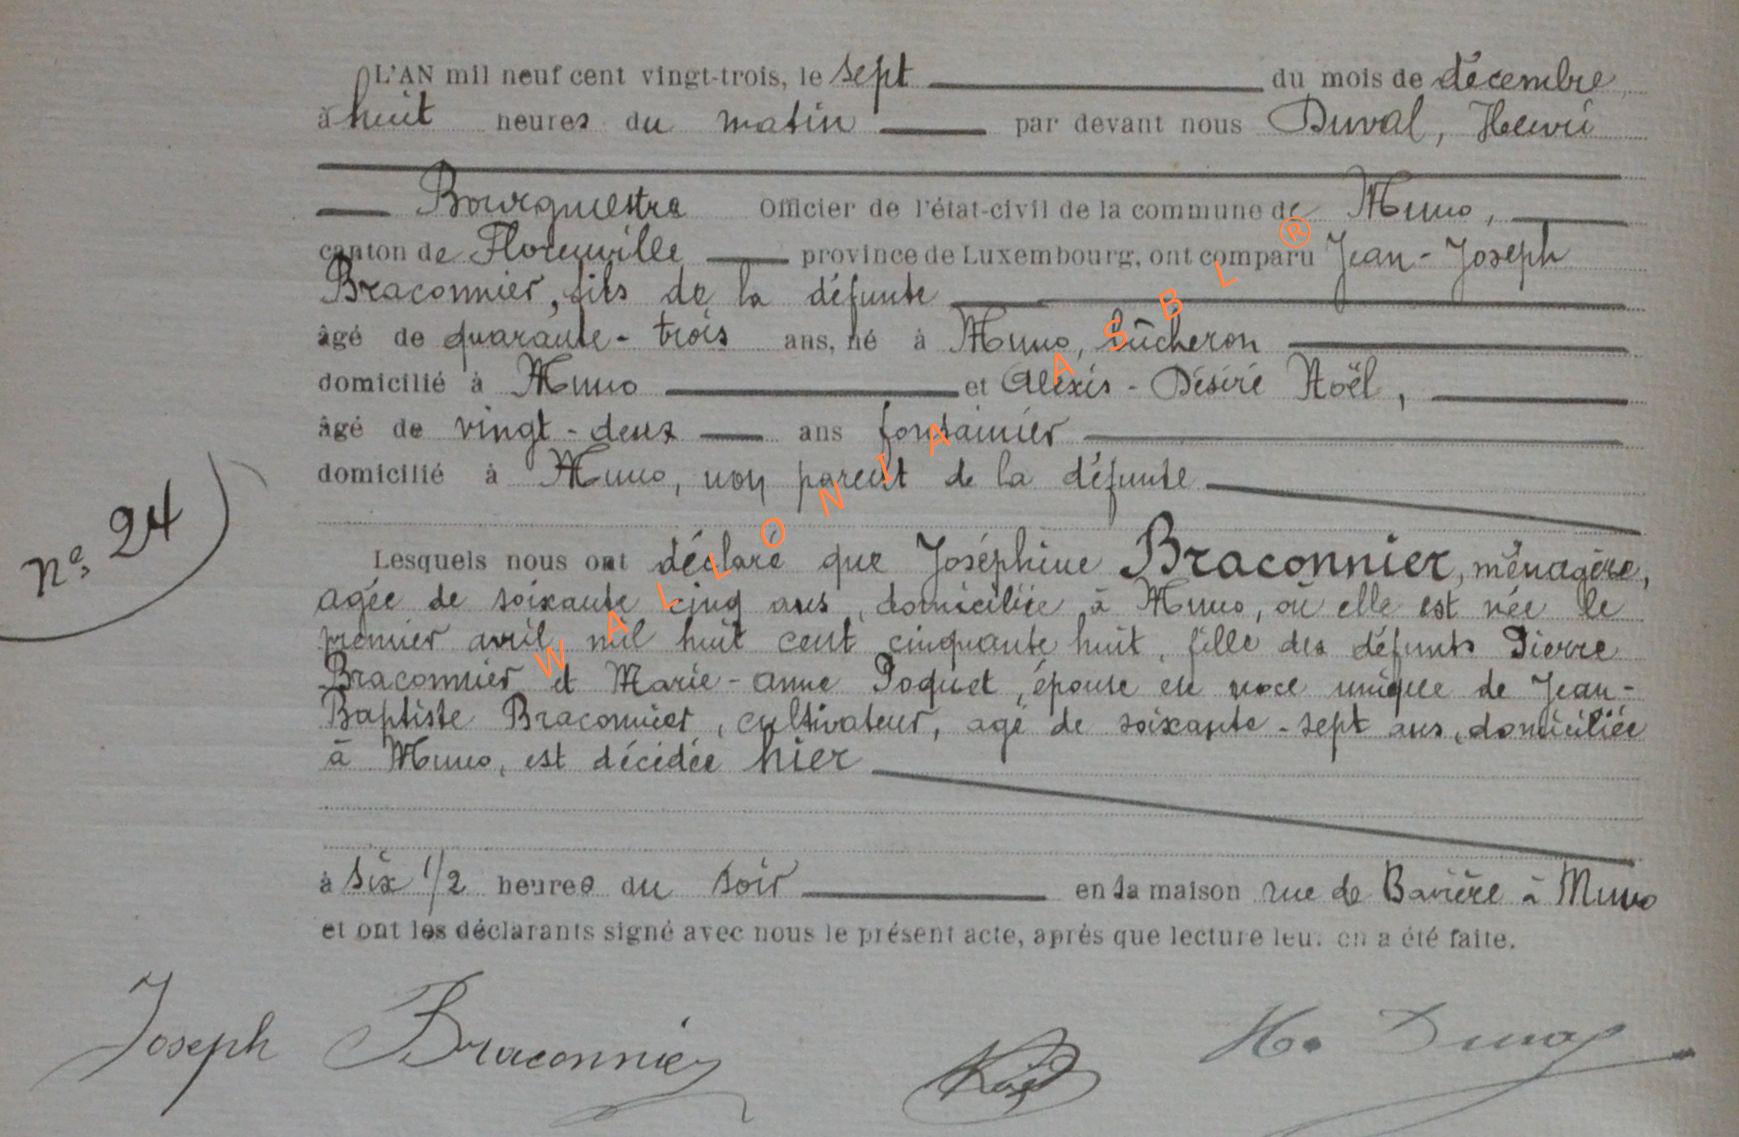 L'AN mil neuf cent vingt-trois, le sept du mois de décembre
à huit heures du matin par devant nous Duval, Henri
Bourgmestre Officier de l'état-civil de la commune de Muno,
canton de Florenville province de Luxembourg, ont comparu Jean-Joseph
Braconnier, fils de la défunte
âgé de quarante-trois ans, né à Muno, bûcheron
domicilié à Muno et Alexis-Désiré Noël,
âgé de vingt-deux ans fontainier
domicilié à Muno, non parent de la défunte
nº 24
Lesquels nous ont déclaré que Joséphine Braconnier, ménagère,
agée de soixante cinq ans, domiciliée à Muno, où elle est née le
premier avril mil huit cent cinquante huit, fille des défunts Pierre
Braconnier et Marie-Anne Poquet, épouse en noce unique de Jean-
Baptiste Braconnier, cultivateur, agé de soixante-sept ans, domiciliée
à Muno, est décédée hier
à six 1/2 heures du soir en la maison rue de Bavière à Muno
et ont les déclarants signé avec nous le présent acte, après que lecture leur en a été faite.
Joseph Braconnier Noël H. Duval
WALLONIA ASBL ®